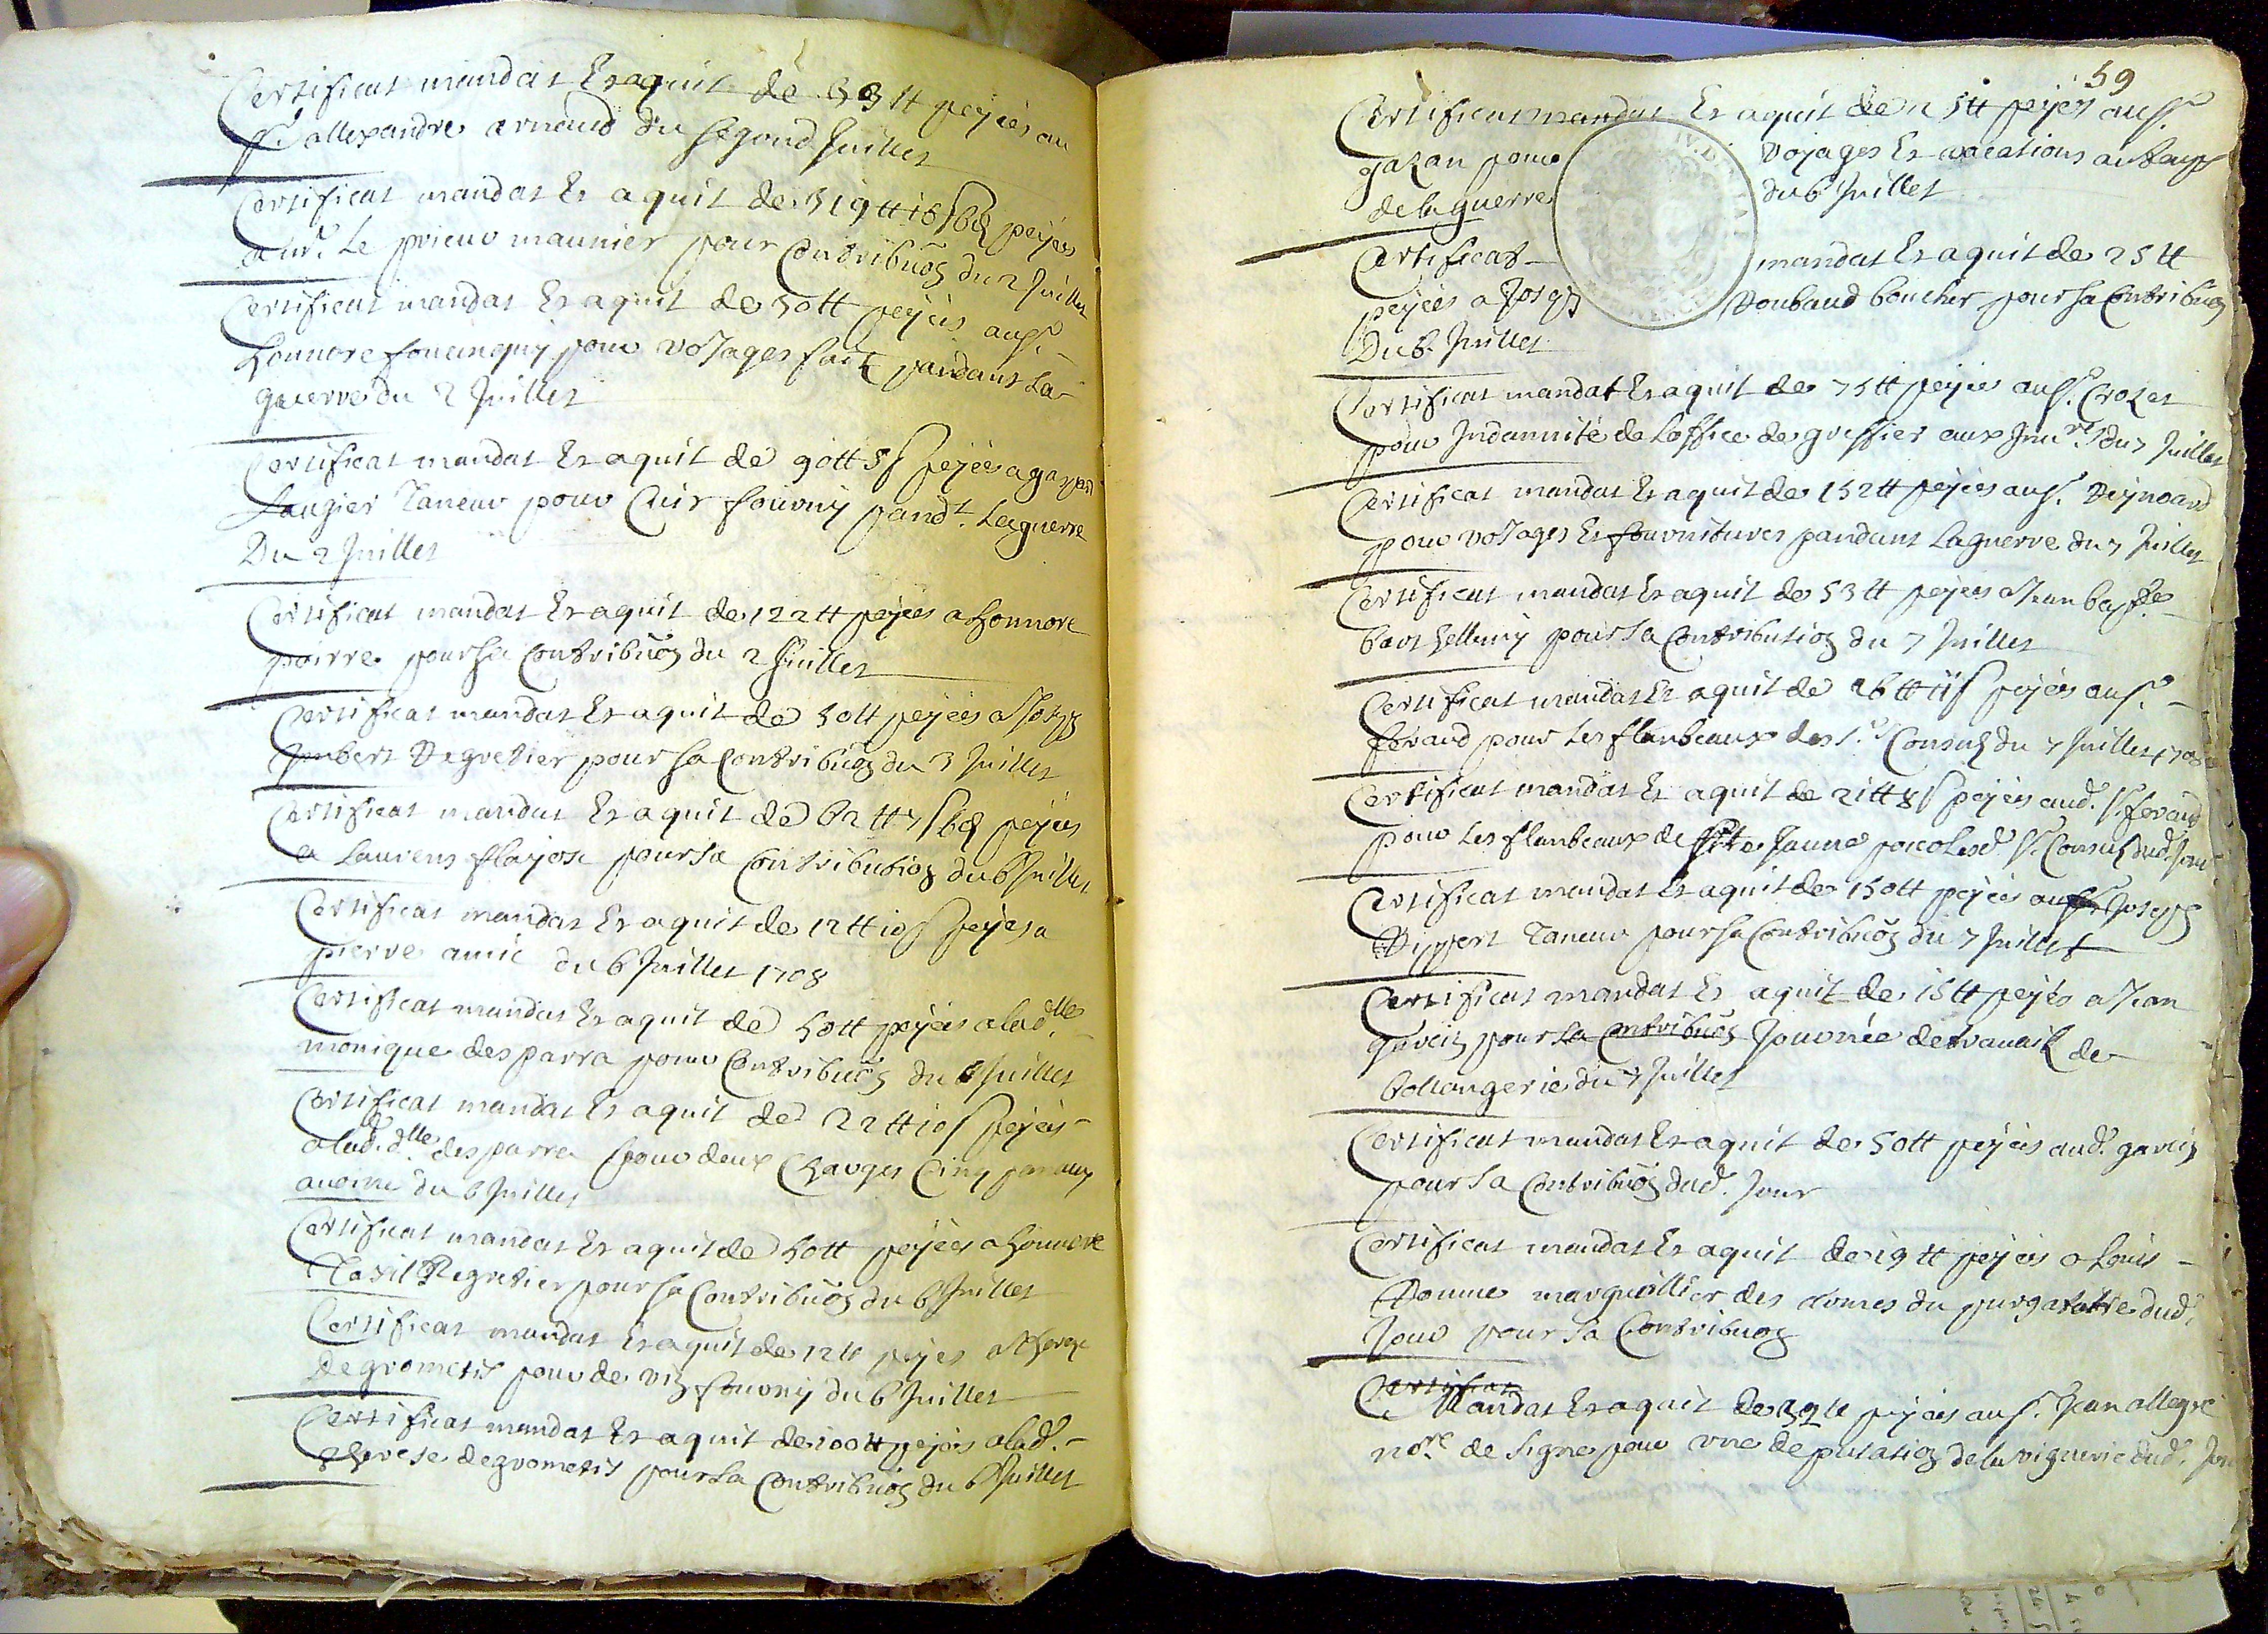 Certificat mandat Et aquit de 33 tt peyées au
Sr. allexandre arnaud du segond Juillet
Certificat mandat Et aquit de 319 tt 16 s 6 d peyées
a mr. Le prieur maunier pour Contribuõn du 2 Juillet
Certificat mandat Et aquit de 50 tt peyées au sr.
honnore foucinquy pour voyages fait pandant La
guerre du 2 Juillet
Certificat mandat Et aquit de 90 tt 5 s peyées a gaspard
Laugier Taneur pour Cuir fourny pandt. Laguerre
Du 2 Juillet
Certificat mandat Et aquit de 122 tt peyées a honnore
poirre pour sa Contribuõn du 2 Juillet
Certificat mandat Et aquit de 50 tt peyées a Joseph
Jmbert Regretier pour sa Contribuõn du 3 Juillet
Certificat mandat Et aquit de 62 tt 7 s 6 d peyées
a Laurens flayosc pour sa Contribution du 6 Juillet
Certificat mandat Et aquit de 12 tt 10 s peyées a
pierre amic du 6 Juillet 1708
Certificat mandat Et aquit de 50 tt peyées a lad. dlle
monique desparra pour Contribuõn du 6 Juillet
Certificat mandat Et aquit de 22 tt 10 s peyées
a lad. dlle. desparra pour deux Charges Cinq panaux
avoine du 6 Juillet
Certificat mandat Et aquit de 50 tt peyées a honnore
Taxil Regretier pour sa Contribuõn du 6 Juillet
Certificat mandat Et aquit de 12 tt peyées a
Degrometis pour de vin fourny du 6 Juillet
Certificat mandat Et aquit de 100 tt peyées a lad.
Therese degrometis pour sa Contribuõn du 6 Juillet
59
Certificat mandat Et aquit de 25 tt peyées au sr.
gazan pour voyages Et vacations au temps
de la guerre du 6 Juillet
Certificat mandat Et aquit de 25 tt
peyées a Joseph Roubaud boucher pour sa Contribuõn
Du 6 Juillet
Certificat mandat Et aquit de 75 tt peyées au sr. Crozet
pour Jndamnité de Loffice de greffier aux Jnvres. du 7 Juillet
Certificat mandat Et aquit de 152 tt peyées au sr. Reynoard
pour voyages Et fournitures pandant Laguerre du 7 Juillet
Certificat mandat Et aquit de 53 tt peyées a Jean bapte.
barthellemy pour sa Contribution du 7 Juillet
Certificat mandat Et aquit de 26 tt 11 s peyées au sr.
feraud pour Les flambeaux des srs. Consuls du 7 Juillet 1708
Certificat mandat Et aquit de 21 tt 8 s peyées aud. sr. feraud
pour Les flambeaux de Jaune po Lesd. srs. Consuls dud. Jour
Certificat mandat Et aquit de 150 tt peyées au Joseph
Rippert Taneur pour sa Contribuõn du 7 Juillet
Certificat mandat Et aquit de 15 tt peyées a Jean
garcin pour sa Contribuõn Journée de travail de
bollangerie du 7 Juillet
Certificat mandat Et aquit de 50 tt peyées aud. garcin
pour sa Contribuõn dud. Jour
Certificat mandat Et aquit de 19 tt peyées a Louis
Roume marguillier des ames du purgatoire dud.
Jour pour sa Contribuon
Certificat
Mandat Et aquit de 32 tt peyées au sr. Jean allegre
nore. de Signe pour une deputation de la viguerie dud. Jour